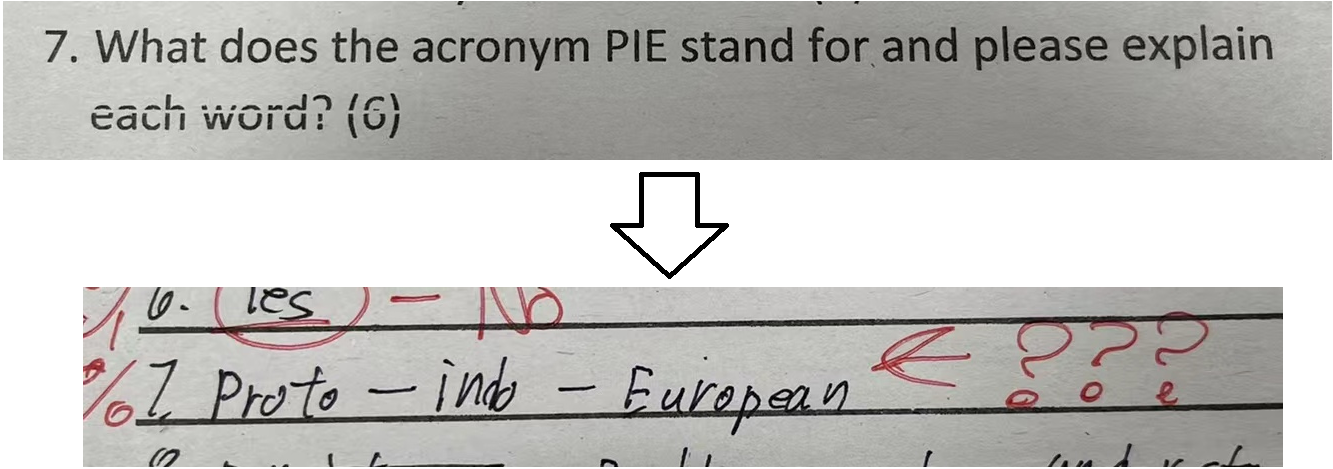 7. What does the acronym PIE stand for and please explain
each word? (6)
6. Yes - No
7 Proto - indo - European ← ???